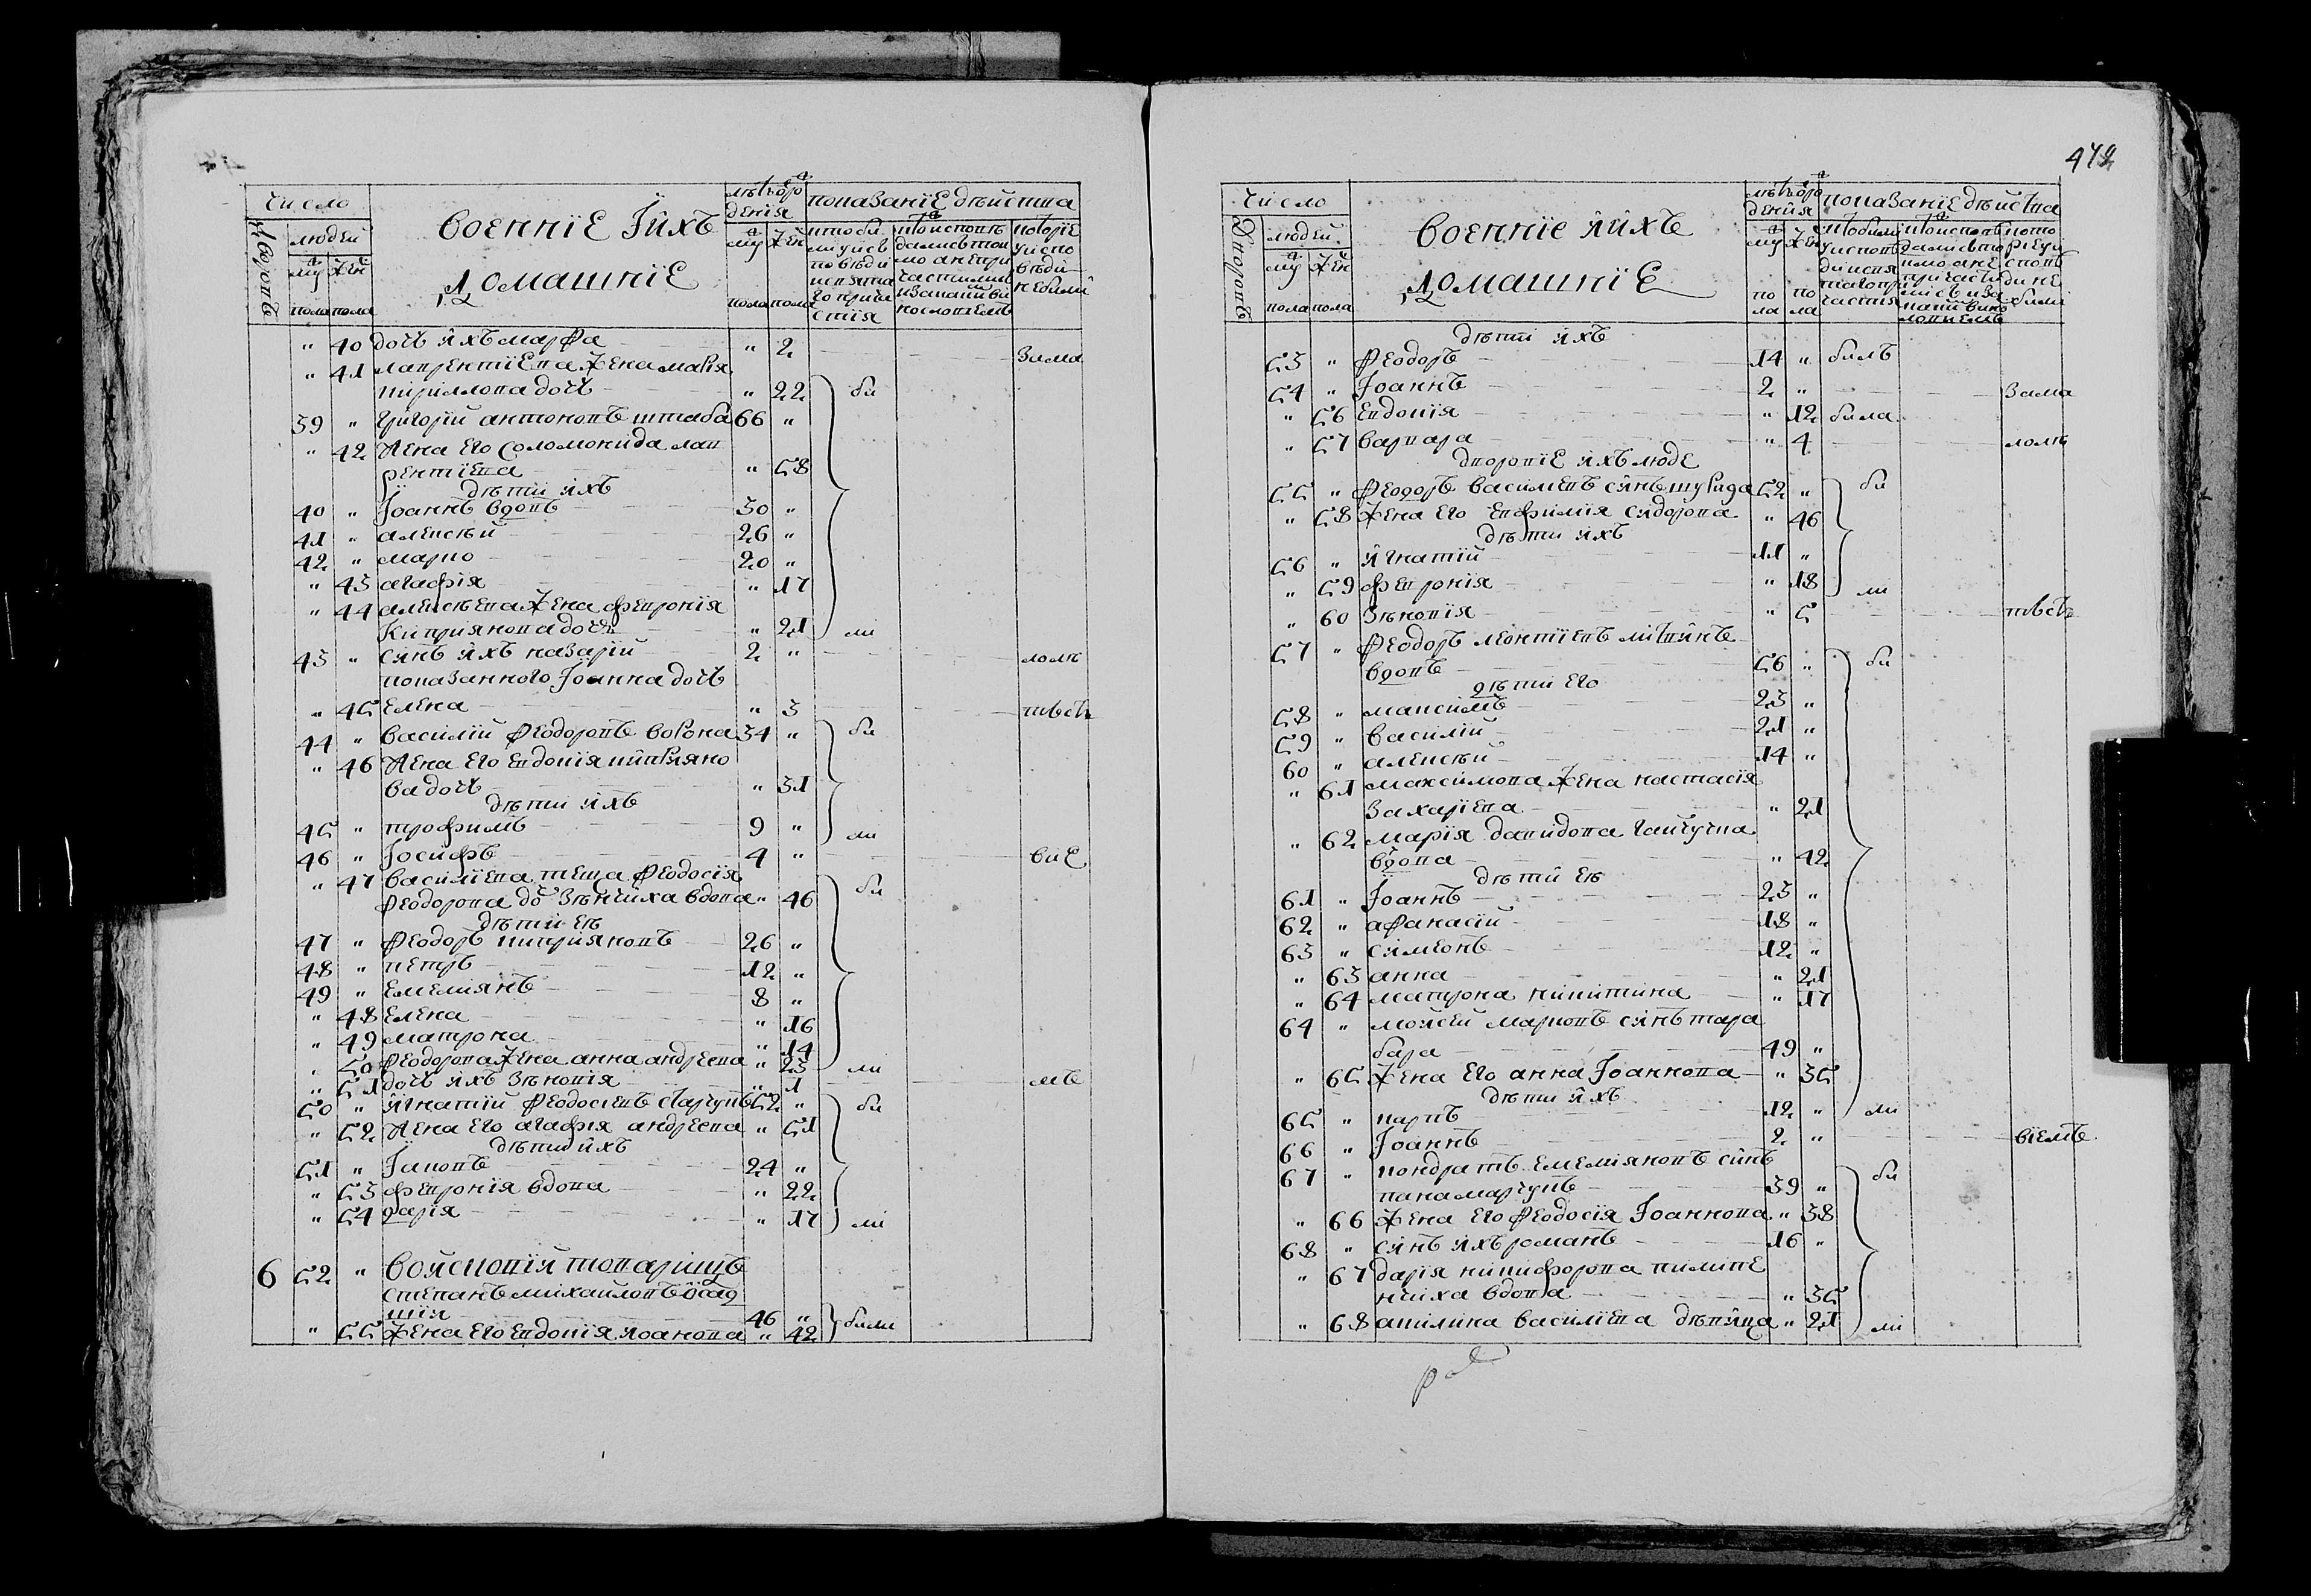 число
военніе їихъ
домашніе
лѣтъ от рождения
показаніе дѣйства
дворовъ
людей
муж жен
пола пола
" 40 дочь ихъ марфа " 2 зама
" 41 лаврентіева жена марія
кириллова дочь " 22 би
39 " григорій антоновъ штаба 66 "
" 42 жена его соломонида лав
рентіева " 58
дѣти ихъ
40 " Іоаннъ вдовъ 30 "
41 " алексѣй 26 "
42 " марко 20 "
" 43 агафія " 17
" 44 алексѣева жена февронія
Киприянова дочь " 21 ли
43 " синъ ихъ назарій 2 " лолѣ
показанного Іоанна дочь
" 45 елена " 3 твстъ
44 " василій феодоровъ ворона 34 " би
" 46 жена его евдокія киприяно
ва дочь " 31
дѣти ихъ
45 " трофимъ 9 " ли
46 " Іосифъ 4 " віе
" 47 василіева теща феодосія
феодорова до зѣнчиха вдова " 46 би
дѣти еѣ
47 " феодоръ киприяновъ 26 "
48 " петръ 12 "
49 " емелиянъ 8 "
" 48 елена " 16
" 49 матрона " 14
" 50 феодорова жена анна андреева " 23 ли
" 51 дочь ихъ зѣновія " 1 мъ
50 " игнатій феодосіевъ старчукъ 52 " би
" 52 жена его агафія андреева " 51
дѣти ихъ
51 " Іаковъ 24 "
" 53 февронія вдова " 22
" 54 дарія " 17 ли
6 52 " войсковій товарищъ
степанъ михайловъ осад
шія 46 " били
" 55 жена его евдокія иоанова " 42
478
число
военніе ійхъ
домашніе
показаніе дѣйства
дворовъ
людей
муж жен
пола пола
дѣти ихъ
53 " феодоръ 14 " билъ
54 " Іоаннъ 2 " зама
" 56 евдокія " 12 била
" 57 варвара " 4 лолѣ
дворовіе ихъ люде
55 " феодоръ василіевъ синъ шурида 52 " би
" 58 жена его евфимія сидорова " 46
дѣти ихъ
56 " игнатій 11 "
" 59 февронія " 18 ли
" 60 зѣновія " 5 твстъ
57 " феодоръ леонтіевъ литвинъ
вдовъ 56 " би
дѣти его
58 " максимъ 23 "
59 " василій 21 "
60 " алексѣй 14 "
" 61 максимова жена настасія
захаріева " 21
" 62 марія давидова гайчучка
вдова " 42
дѣти еѣ
61 " Іоаннъ 23 "
62 " афанасій 18 "
63 " симеонъ 12 "
" 63 анна " 21
" 64 матрона никитина " 17
64 " мойсей марковъ синъ тара
бара 49 "
" 65 жена его анна Іоаннова " 35
дѣти ихъ
65 " карпъ 12 " ли
66 " Іоаннъ 2 " віемъ
67 " кондратъ емелияновъ синъ
панамарчукъ 39 " би
" 66 жена его феодосія Іоаннова " 38
68 " синъ ихъ романъ 16 "
" 67 дарія никифорова пилипе
нчиха вдова " 35
" 68 акилина василіева дѣвица " 21 ли